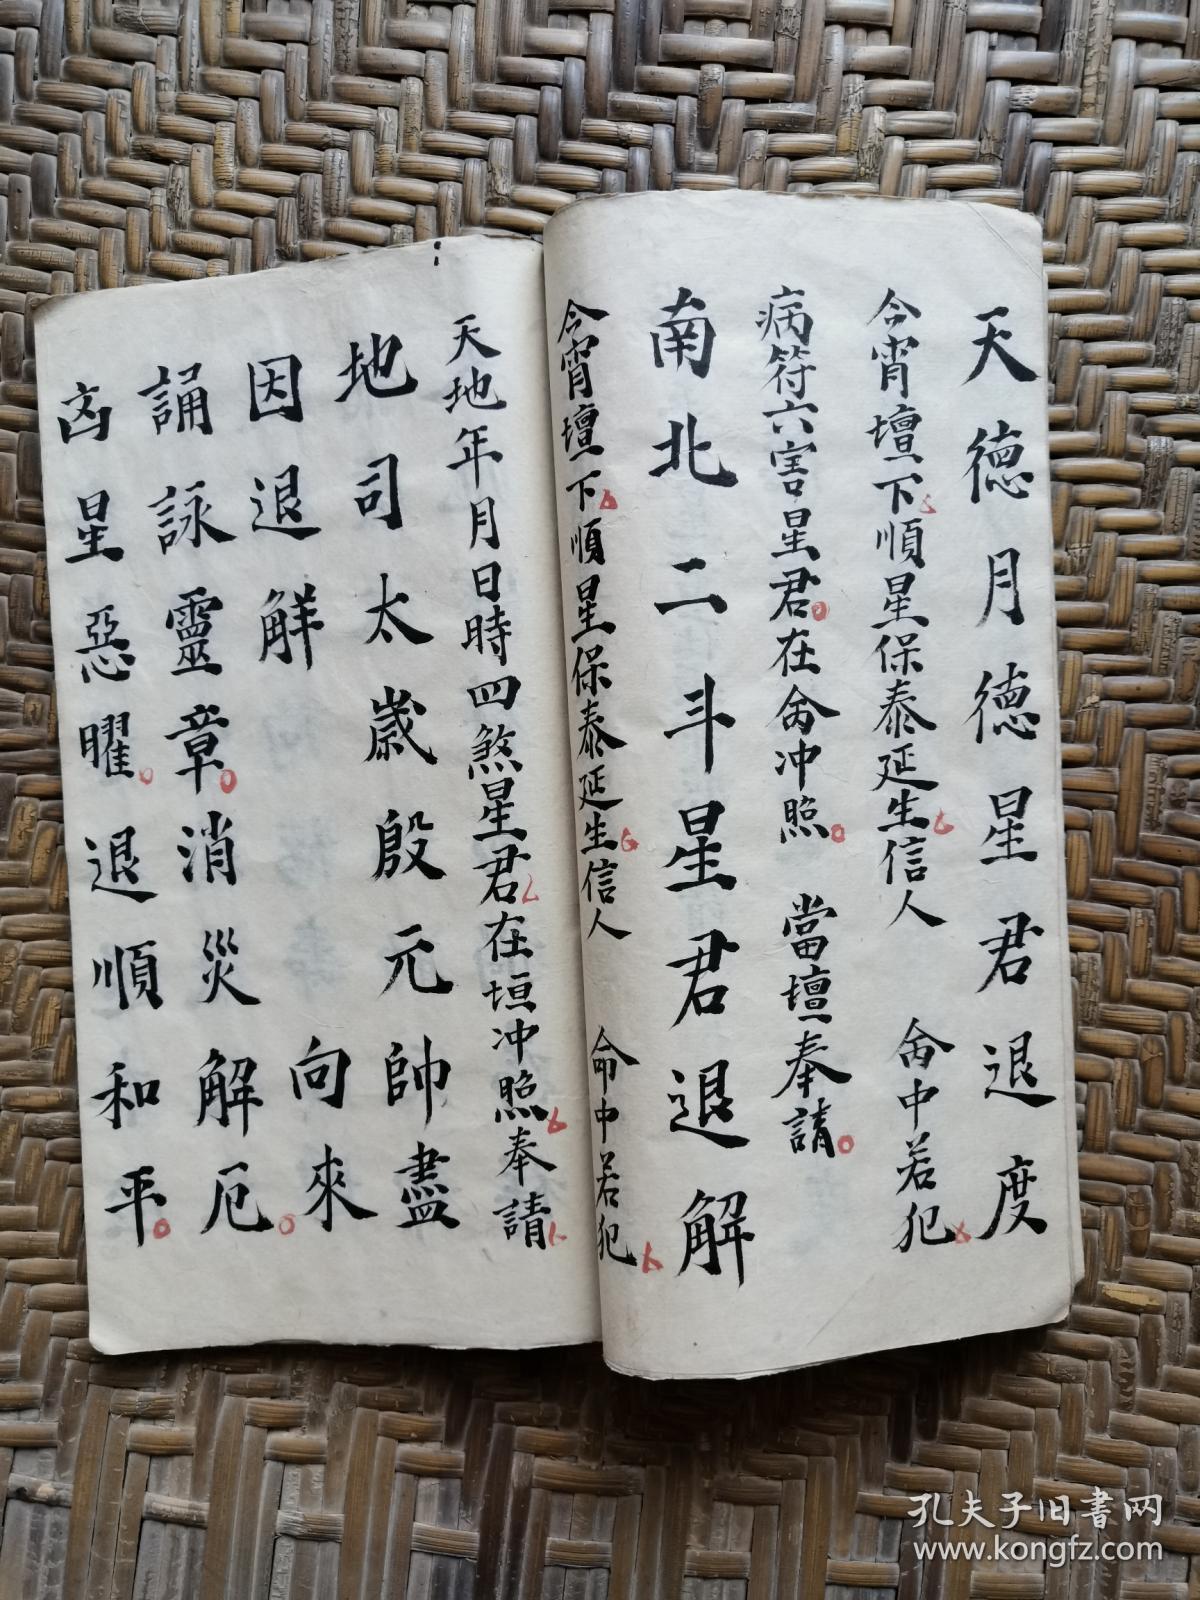 天德月德星君退度
今宵壇下順星保泰延生信人 命中若犯
病符六害星君在命冲照 當壇奉請
南北二斗星君退解
今宵壇下順星保泰延生信人 命中若犯
天地年月日時四煞星君在垣冲照奉請
地司太歲殷元帥盡
因退解 向來
誦詠靈章消災解厄
凶星惡曜退順和平
孔夫子旧书网
www.kongfz.com